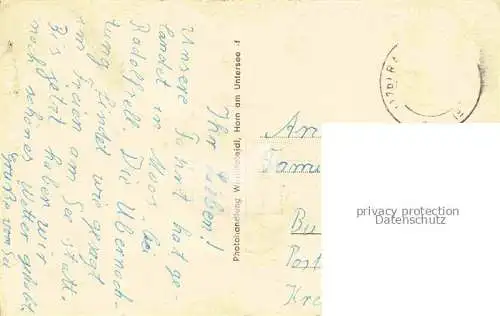 Ihr Lieben!
Unsere Fahrt hat ge-
landet in Moos bei
Radolfzell. Die Übernach-
tung findet wie gesagt
im Freien am See statt.
Bis jetzt haben wir
noch schönes Wetter gehabt.
Grüße vom See
Photohandlung Horn am Untersee
An
Fami
Bu
Post
Kre
privacy protection
Datenschutz